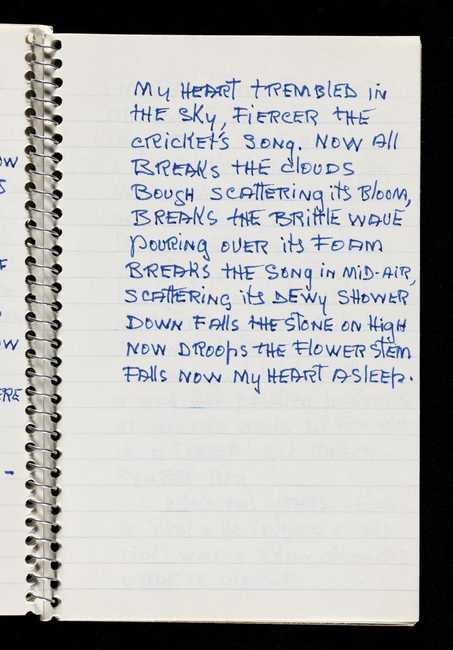 OW
S
F
OW
ERE
-
My HEART TREMBLED iN
THE SKy, FiERCER THE
CRiCKET'S SONG. NOW All
BREAKS THE ClOUDS
BOUGH SCATTERiNG iTS BlOOM,
BREAKS THE BRiTTlE WAVE
POURiNG OVER iTS FOAM
BREAKS THE SONG iN MiD-AiR,
SCATTERiNG iTS DEWy SHOWER
DOWN FAllS THE STONE ON HiGH
NOW DROOPS THE FlOWER STEM
FAllS NOW My HEART ASlEEP.